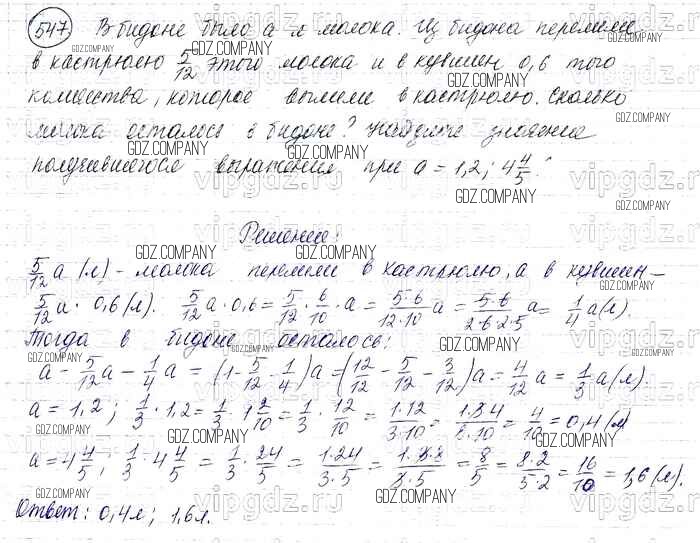 547 В бидоне было a л молока. Из бидона перелили
в кастрюлю 5/12 этого молока и в кувшин 0,6 того
количества, которое вылили в кастрюлю. Сколько
молока осталось в бидоне? Найдите значение
получившегося выражения при a = 1,2; 4 4/5.
Решение:
5/12 a (л) - молока перелили в кастрюлю, а в кувшин –
5/12 a · 0,6 (л). 5/12 a · 0,6 = 5/12 · 6/10 · a = 5·6/12·10 a = 5·6/2·6·2·5 a = 1/4 a (л).
Тогда в бидоне осталось:
a - 5/12 a - 1/4 a = (1 - 5/12 - 1/4) a = (12/12 - 5/12 - 3/12) a = 4/12 a = 1/3 a (л).
a = 1,2; 1/3 · 1,2 = 1/3 · 1 2/10 = 1/3 · 12/10 = 1·12/3·10 = 1·3·4/3·10 = 4/10 = 0,4 (л)
a = 4 4/5; 1/3 · 4 4/5 = 1/3 · 24/5 = 1·24/3·5 = 1·3·8/3·5 = 8/5 = 8·2/5·2 = 16/10 = 1,6 (л).
Ответ: 0,4 л; 1,6 л.
GDZ.COMPANY
vipgdz.ru